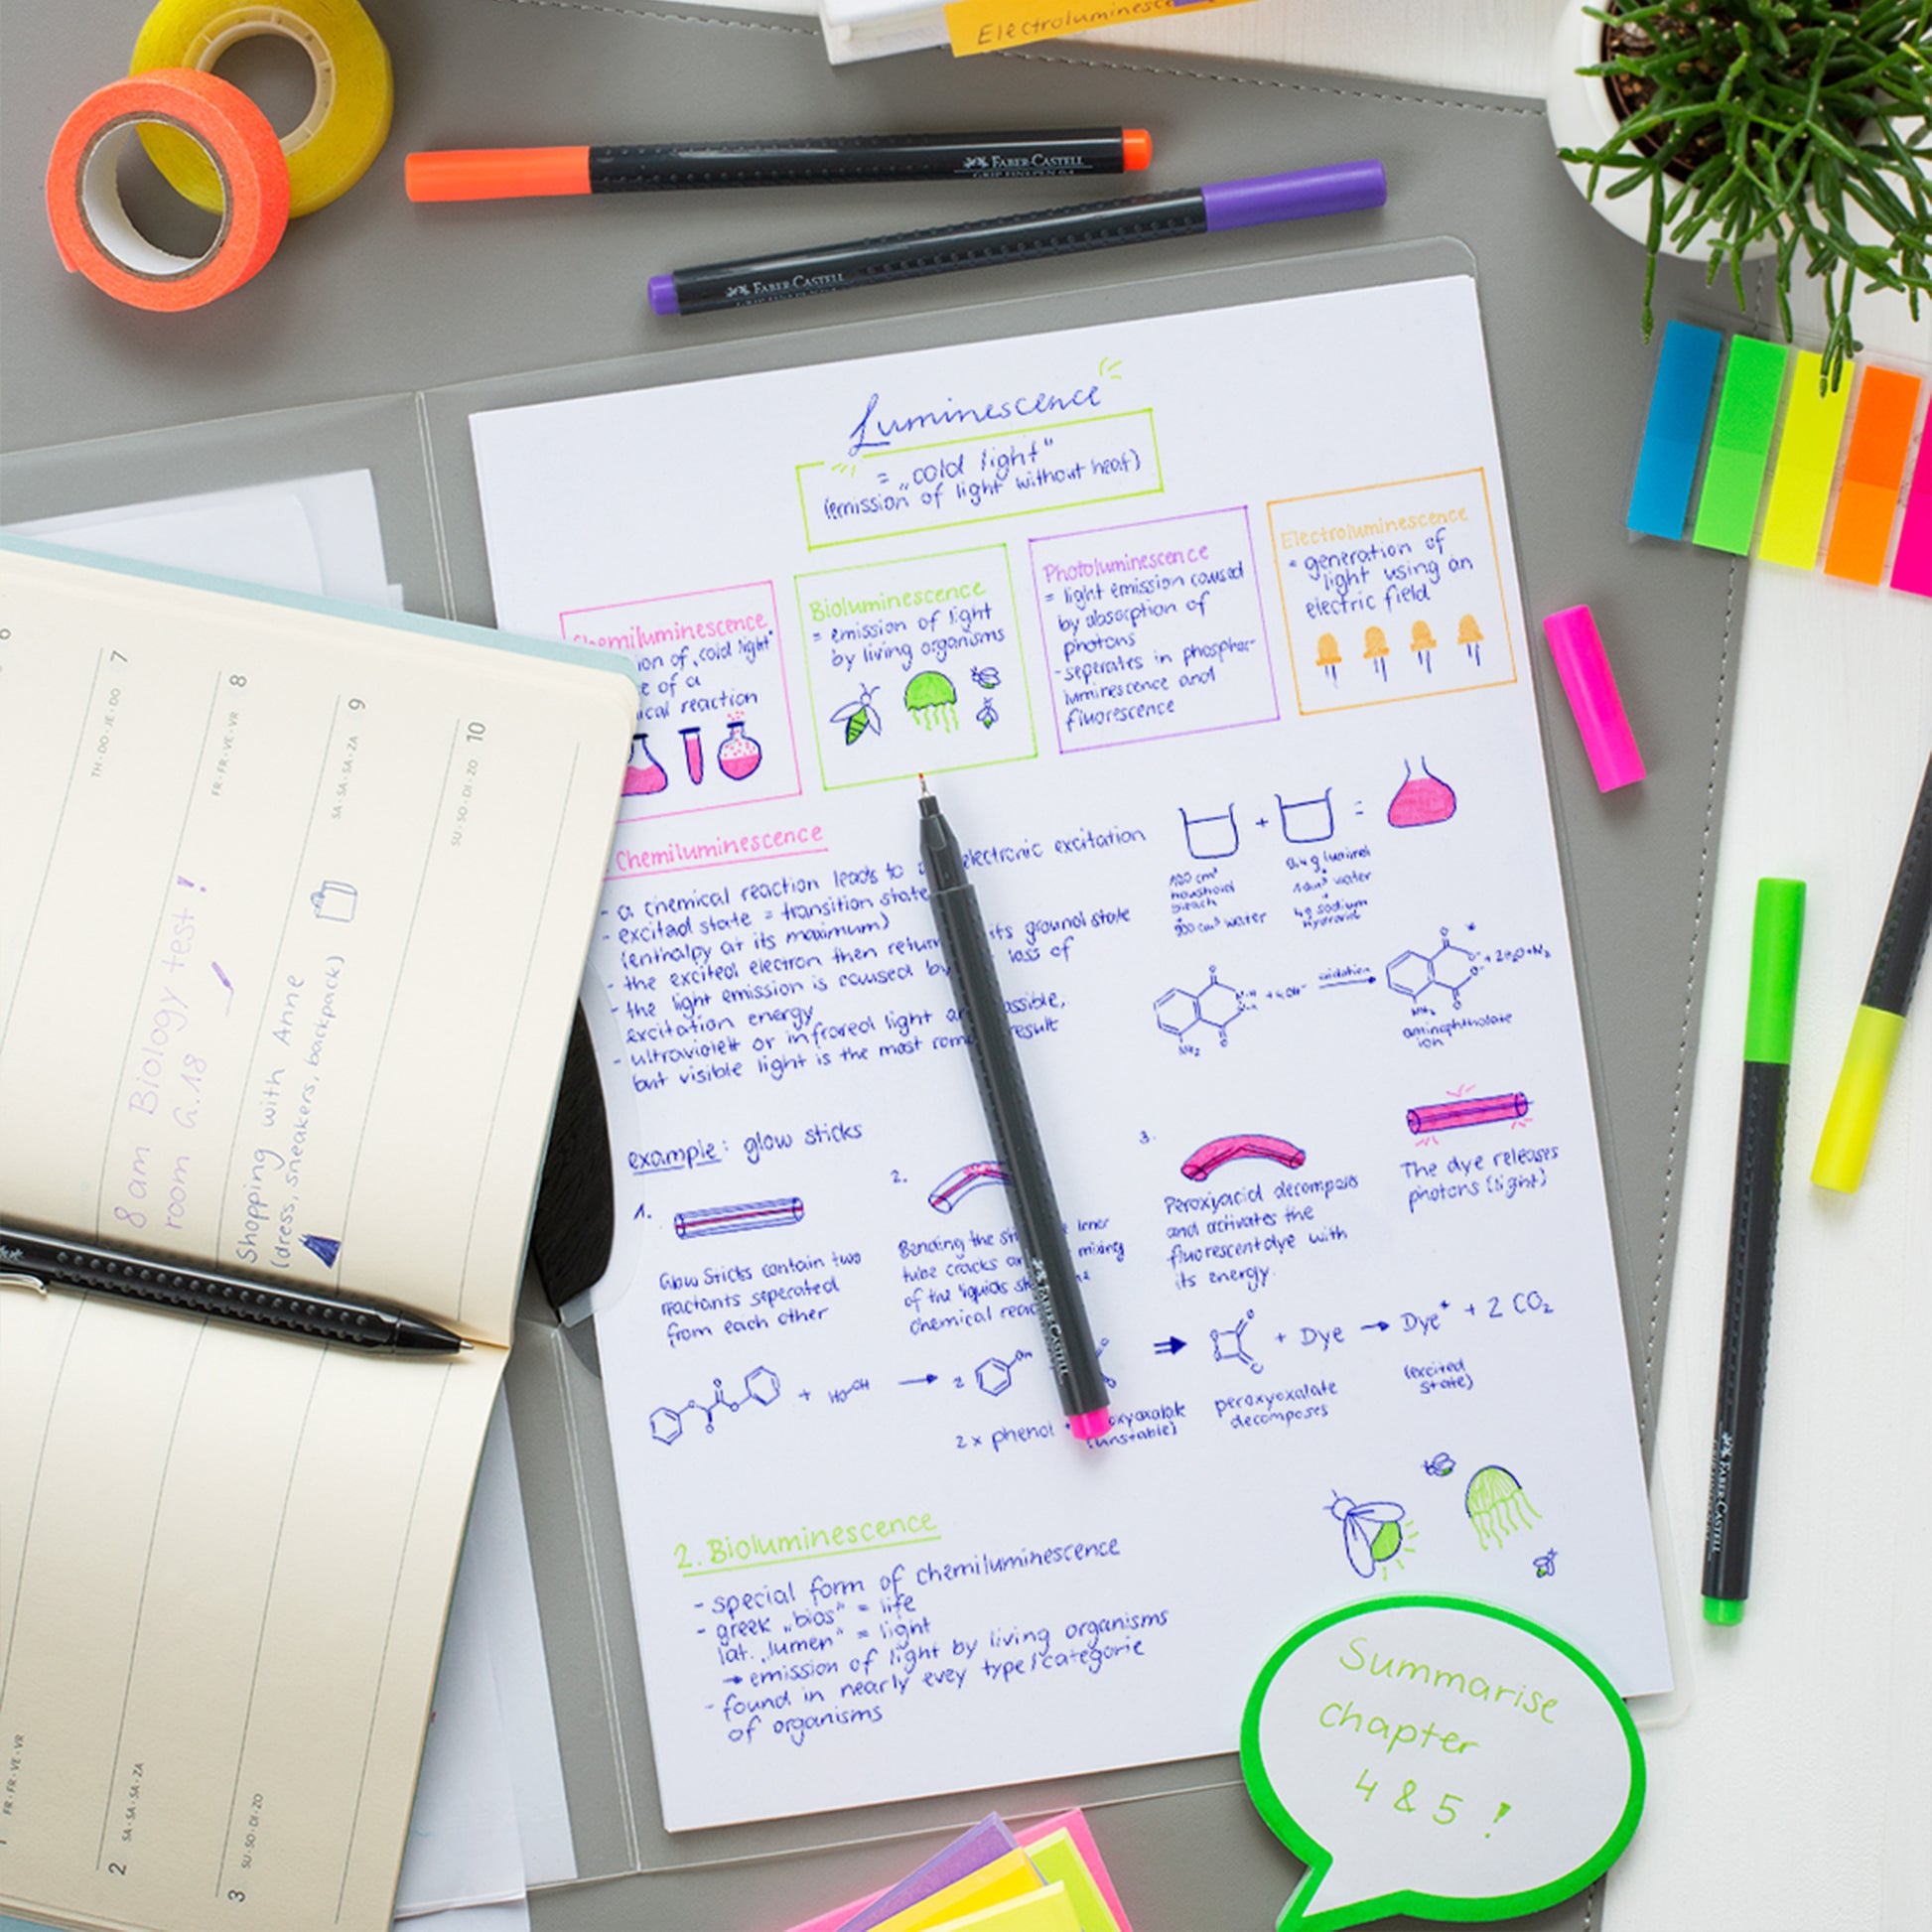 Electroluminesc
FABER-CASTELL
GRIP FINEPEN 0.4
FABER-CASTELL
Luminescence
= „cold light"
(emission of light without heat)
Chemiluminescence
ion of „cold light"
e of a
ical reaction
Bioluminescence
= emission of light
by living organisms
Photoluminescence
= light emission caused
by absorption of
photons
- seperates in phosphor-
luminescence and
fluorescence
Electroluminescence
= generation of
light using an
electric field
TH • DO • JE • DO 7
FR • FR • VE • VR 8
8 am Biology test!
room G.18
SA • SA • SA • ZA 9
Shopping with Anne
(dress, sneakers, backpack)
SU • SO • DI • ZO 10
1 FR • FR • VE • VR
2 SA • SA • SA • ZA
3 SU • SO • DI • ZO
Chemiluminescence
- a chemical reaction leads to electronic excitation
- excited state = transition state
(enthalpy at its maximum)
- the excited electron then return its ground state
- the light emission is caused by loss of
excitation energy
- ultraviolett or infrared light ossible,
but visible light is the most com result
+ =
100 cm³
houshold
bleach
+
900 cm³ water
0.4 g luminol
+
water
+
4g sodium
hydroxide
NH₂
+ 4 OH⁻
oxidation
* + 2H₂O + N₂
NH₂
aminophthalate
ion
example: glow sticks
1.
Glow Sticks contain two
reactants seperated
from each other
2.
Bending the sti inner
tube cracks an mixing
of the liquids st
chemical reac
3.
Peroxyacid decomposes
and activates the
fluorescent dye with
its energy.
The dye releases
photons (light)
+ → 2
⇒ + Dye → Dye* + 2 CO₂
2 x phenol + oxyoxalate
(unstable)
peroxyoxalate
decomposes
(excited
state)
FABER-CASTELL
2. Bioluminescence
- special form of chemiluminescence
- greek „bios" = life
lat. „lumen" = light
→ emission of light by living organisms
- found in nearly evey type/categorie
of organisms
FABER-CASTELL
Summarise
chapter
4 & 5 !